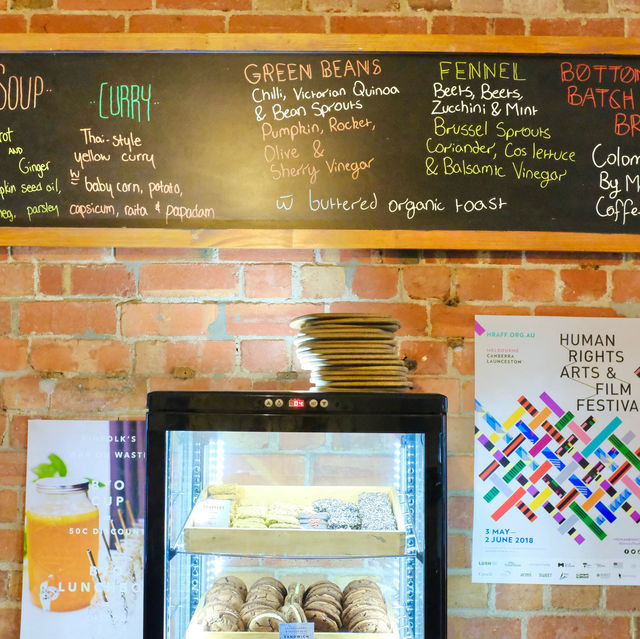 SOUP
AND
Ginger
seed oil,
parsley
CURRY
Thai-style
yellow curry
w̄
baby corn, potato,
capsicum, raita & papadam
GREEN BEANS
Chilli, Victorian Quinoa
& Bean Sprouts
Pumpkin, Rocket,
Olive &
Sherry Vinegar
FENNEL
Beets, Beets,
Zucchini & Mint
Brussel Sprouts
Coriander, Cos lettuce
& Balsamic Vinegar
w̄ buttered organic toast
BATCH
BR
Colom
By M
Coffe
HRAFF.ORG.AU
MELBOURNE
CANBERRA
LAUNCESTON
HUMAN
RIGHTS
ARTS &
FILM
FESTIVA
3 MAY—
2 JUNE 2018
WAR ON WASTE
BYO
CUP
50C DISCOUNT
SANDWICH